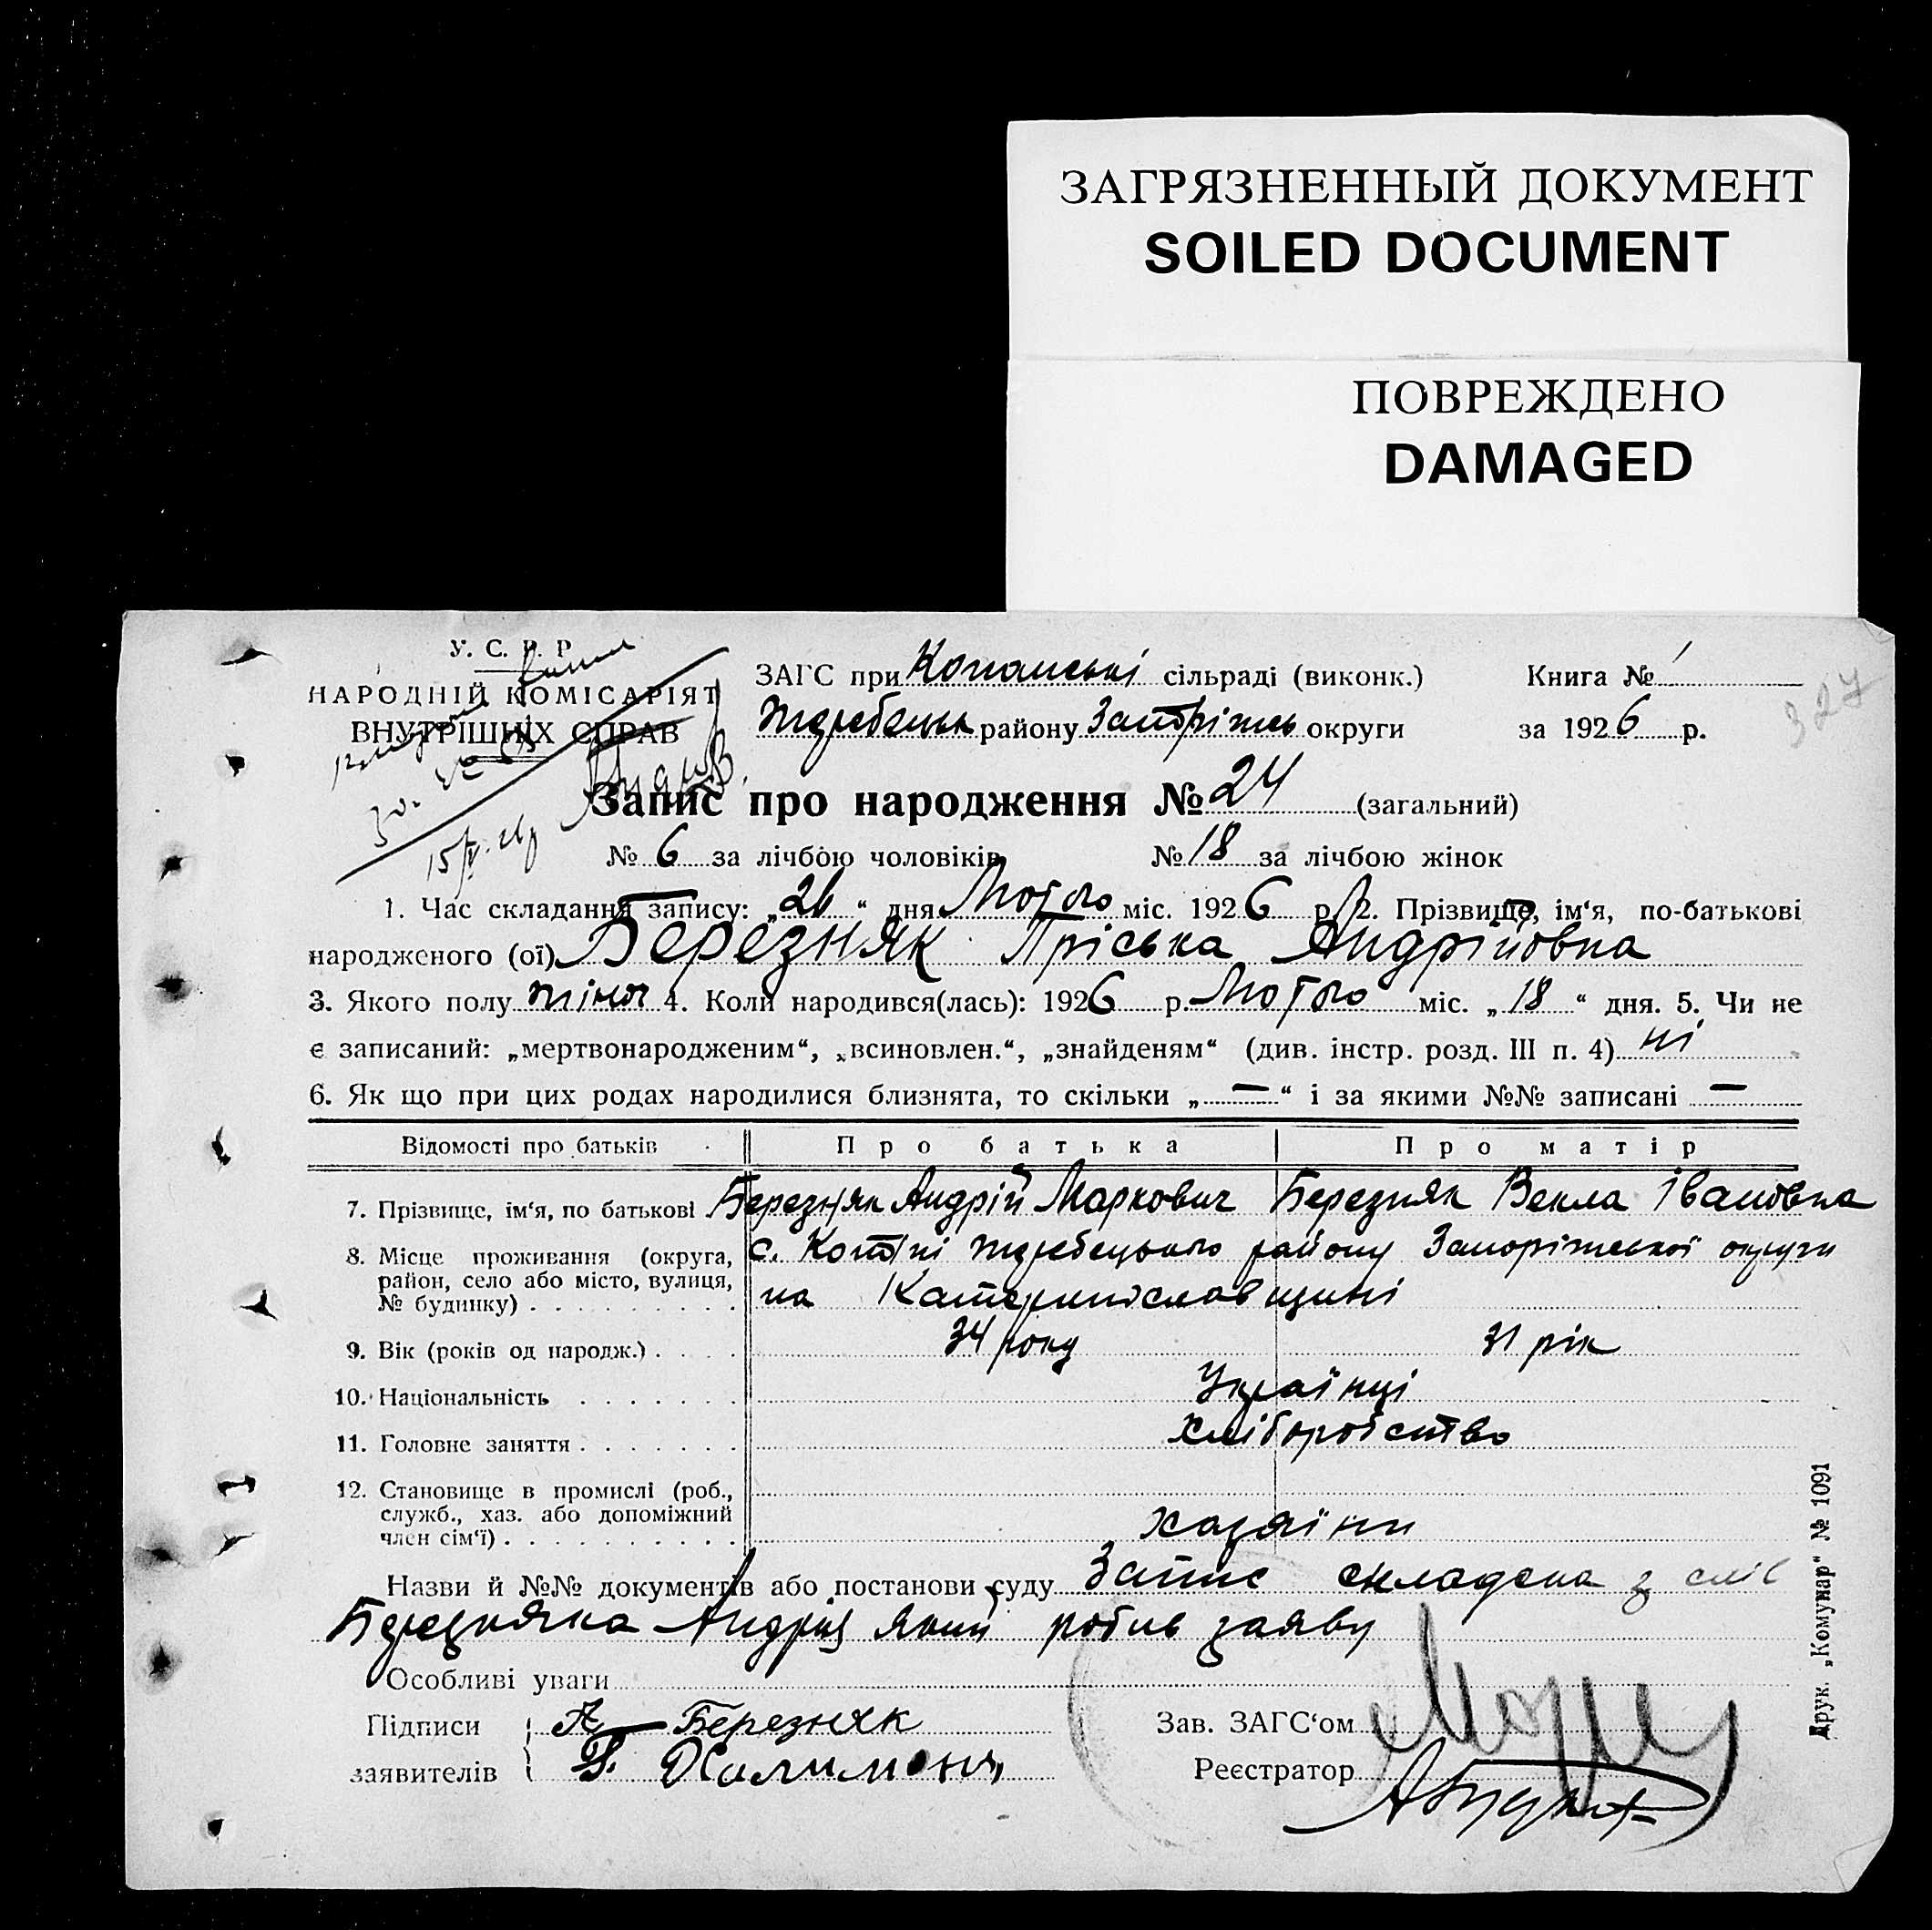 ЗАГРЯЗНЕННЫЙ ДОКУМЕНТ
SOILED DOCUMENT
ПОВРЕЖДЕНО
DAMAGED
У. С. Р. Р
НАРОДНІЙ КОМІСАРІЯТ
ВНУТРІШНІХ СПРАВ
ЗАГС при Копанські сільраді (виконк.) Книга № 1
Жеребецьк району Запоріжсь округи за 1926 р.
327
Запис про народження № 24 (загальний)
№ 6 за лічбою чоловіків № 18 за лічбою жінок
1. Час складання запису: „26“ дня Лютого міс. 1926 р. 2. Прізвище, ім'я, по-батькові
народженого (ої) Березняк Пріська Андрійовна
3. Якого полу жіноч 4. Коли народився(лась): 1926 р. Лютого міс. „18“ дня. 5. Чи не
є записаний: „мертвонародженим“, „всиновлен.“, „знайденям“ (див. інстр. розд. III п. 4) ні
6. Як що при цих родах народилися близнята, то скільки „—“ і за якими №№ записані —
Відомості про батьків Про батька Про матір
7. Прізвище, ім'я, по батькові Березняк Андрій Маркович Березняк Векла Івановна
8. Місце проживання (округа, район, село або місто, вулиця, № будинку) с. Копані Жеребецького району Запоріжської округи
на Катеринославщині
9. Вік (років од народж.) 34 року 31 рік
10. Національність Українці
11. Головне заняття хліборобство
12. Становище в промислі (роб., служб., хаз. або допоміжний член сім'ї) хазяїни
Назви й №№ документів або постанови суду Запис складена з слів
Березняка Андрія який робив заяву
Особливі уваги
Підписи А. Березняк Зав. ЗАГС'ом
заявителів Реєстратор
Друк. „Комунар“ № 1091